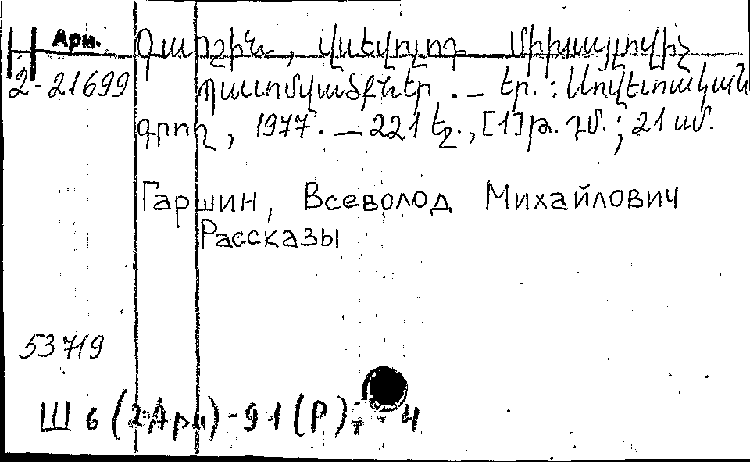 Арм.
Գարշին, Վսեվոլոդ Միխայլովիչ
2-21699
Պատմվածքներ. — Եր.: Սովետական
գրող, 1977. — 221 էջ, [1] թ. դմ.; 21 սմ.
Гаршин, Всеволод Михайлович
Рассказы
53719
Ш 6 (2Арм)-91 (Р)